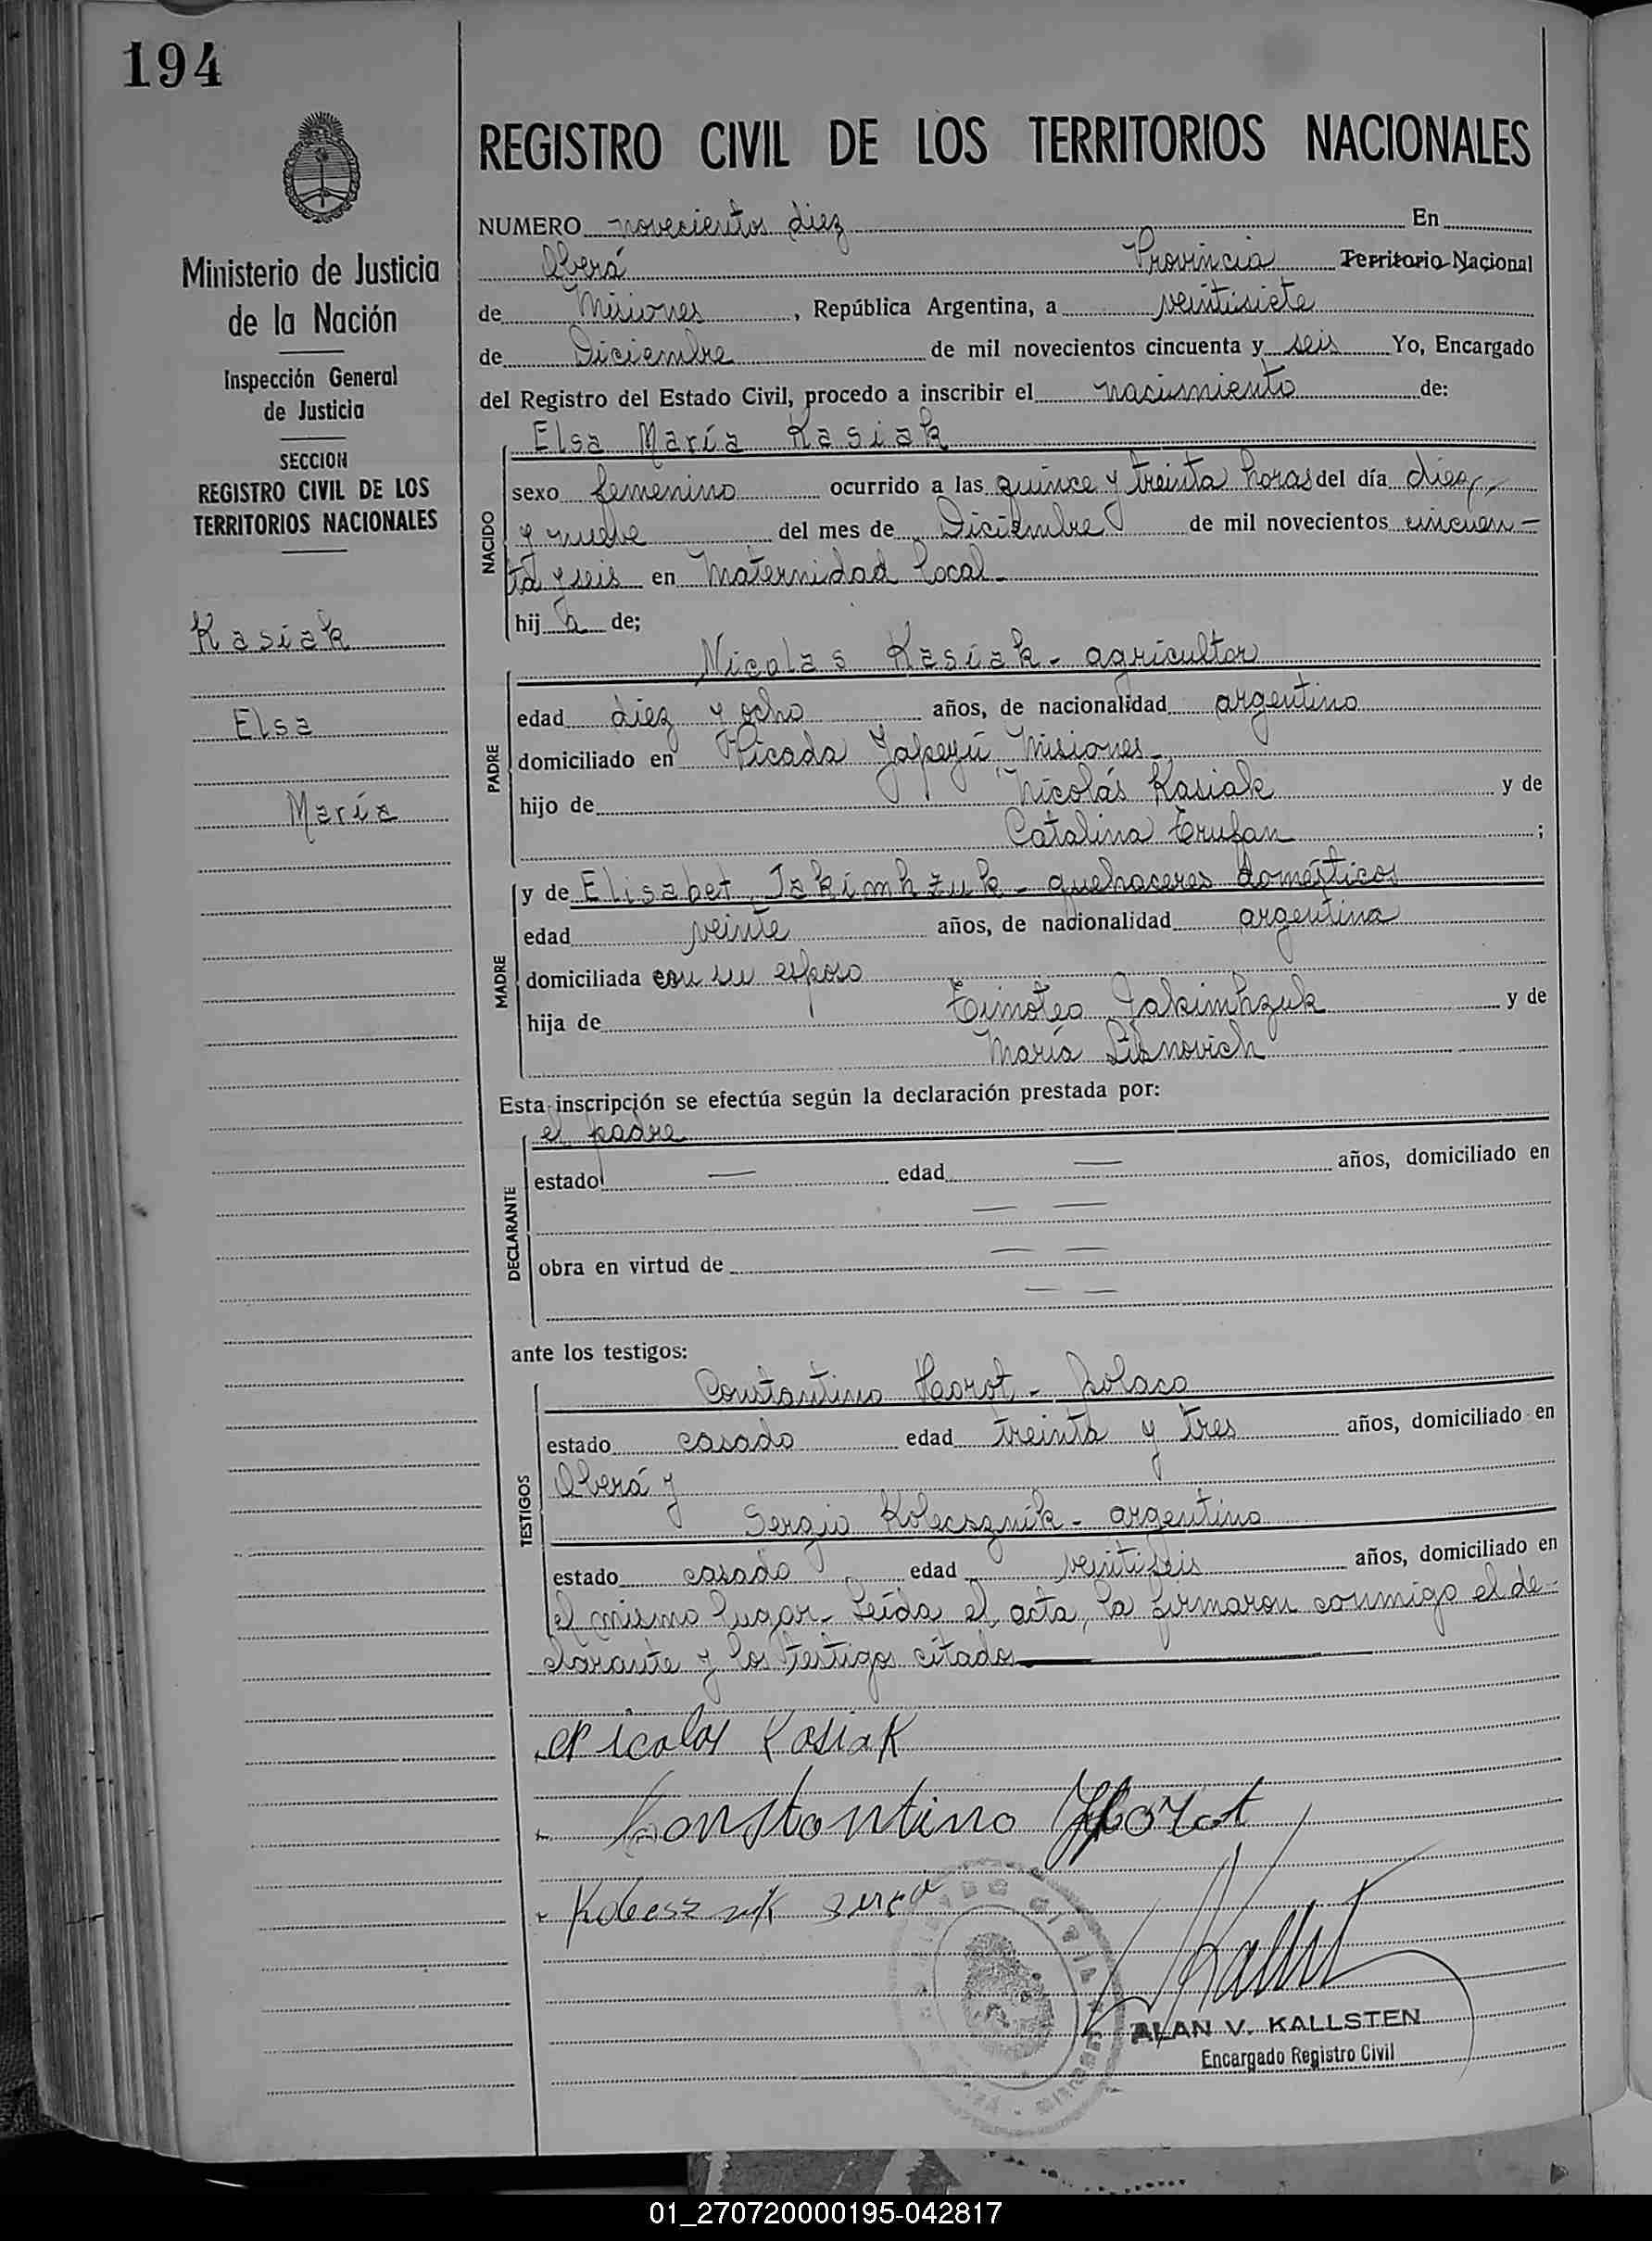 194
REGISTRO CIVIL DE LOS TERRITORIOS NACIONALES
Ministerio de Justicia
de la Nación
Inspección General
de Justicia
SECCION
REGISTRO CIVIL DE LOS
TERRITORIOS NACIONALES
Kasiak
Elsa
María
NUMERO novecientos diez En
Oberá Provincia Territorio Nacional
de Misiones, República Argentina, a veintisiete
de Diciembre de mil novecientos cincuenta y seis Yo, Encargado
del Registro del Estado Civil, procedo a inscribir el nacimiento de:
NACIDO
Elsa María Kasiak
sexo femenino ocurrido a las quince y treinta horas del día diez
y nueve del mes de Diciembre de mil novecientos cincuen-
ta y seis en Maternidad local-
hij a de;
PADRE
Nicolas Kasiak - agricultor
edad diez y ocho años, de nacionalidad argentino
domiciliado en Picada Yapeyú Misiones-
hijo de Nicolás Kasiak y de
Catalina Trufan ;
MADRE
y de Elisabet Jakimhzuk - quehaceres domésticos
edad veinte años, de nacionalidad argentina
domiciliada con su esposo
hija de Timoteo Jakimhzuk y de
María
Esta inscripción se efectúa según la declaración prestada por:
DECLARANTE
el padre
estado — edad — años, domiciliado en
— —
obra en virtud de — —
— —
ante los testigos:
TESTIGOS
Constantino Horot - polaco
estado casado edad treinta y tres años, domiciliado en
Oberá y
Sergio Kolecsznik - argentino
estado casado edad veintiseis años, domiciliado en
el mismo lugar- Leída el acta, la firmaron conmigo el de-
clarante y los testigos citados
Nicolas Kasiak
Constantino Horot
ALAN V. KALLSTEN
Encargado Registro Civil
01_270720000195-042817